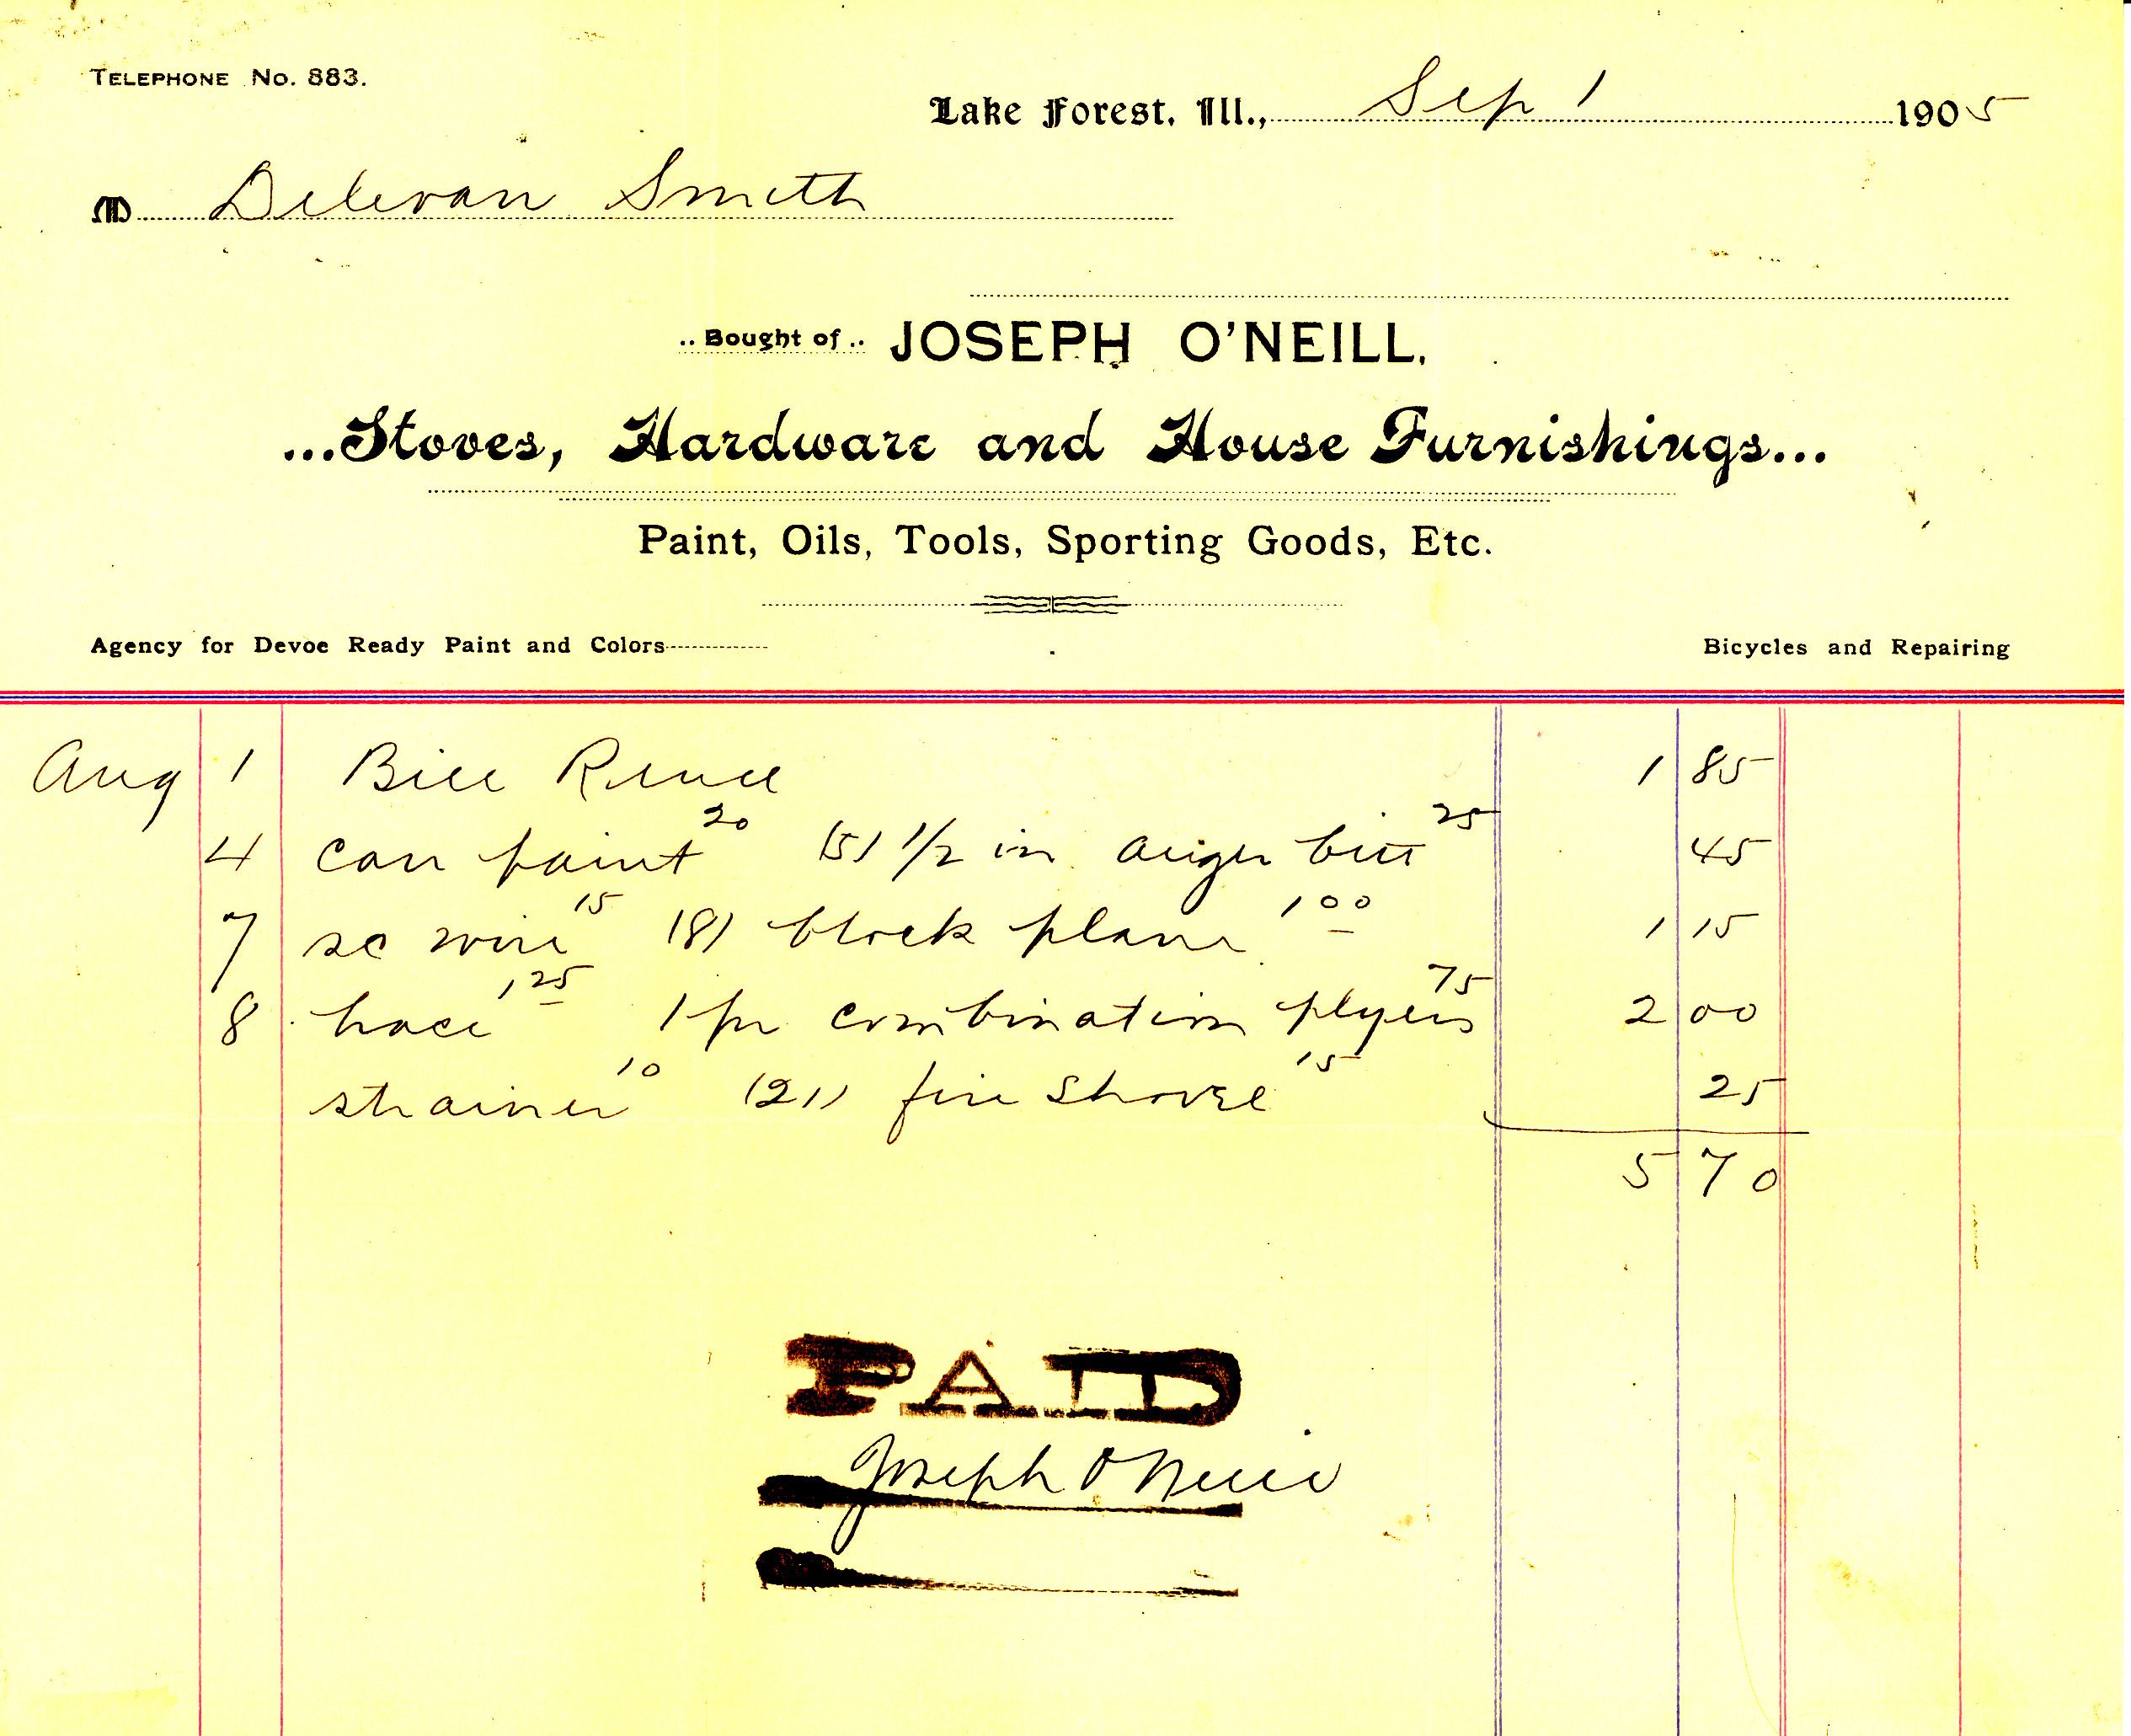 TELEPHONE No. 883.
Lake Forest, Ill., Sep 1 1905
M Delevan Smith
..Bought of.. JOSEPH O'NEILL.
...Stoves, Hardware and House Furnishings...
Paint, Oils, Tools, Sporting Goods, Etc.
Agency for Devoe Ready Paint and Colors Bicycles and Repairing
Aug 1 Bill 1 85
4 can paint 20 (5) 1/2 in auger bitt 25 45
7 sc wire 15 (8) block plane 1 00 1 15
8 1 25 1 pr combination plyers 75 2 00
strainer 10 (21) fire shovel 15 25
5 70
PAID
Joseph O'Neill